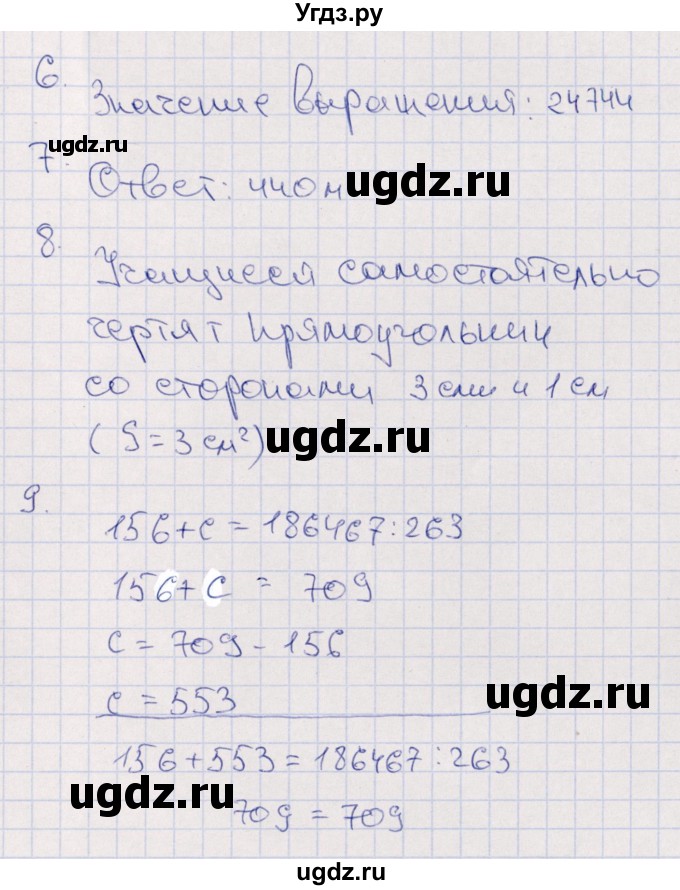 Угдз.ру
6.
Значение выражения: 24744
ugdz.ru
7.
Ответ: 440 м
ugdz.ru
8.
Учащиеся самостоятельно
чертят прямоугольник
со сторонами 3 см и 1 см
(S = 3 см²)
ugdz.ru
9.
156 + c = 186467 : 263
156 + c = 709
c = 709 - 156
c = 553
ugdz.ru
156 + 553 = 186467 : 263
ugdz.ru
709 = 709
ugdz.ru